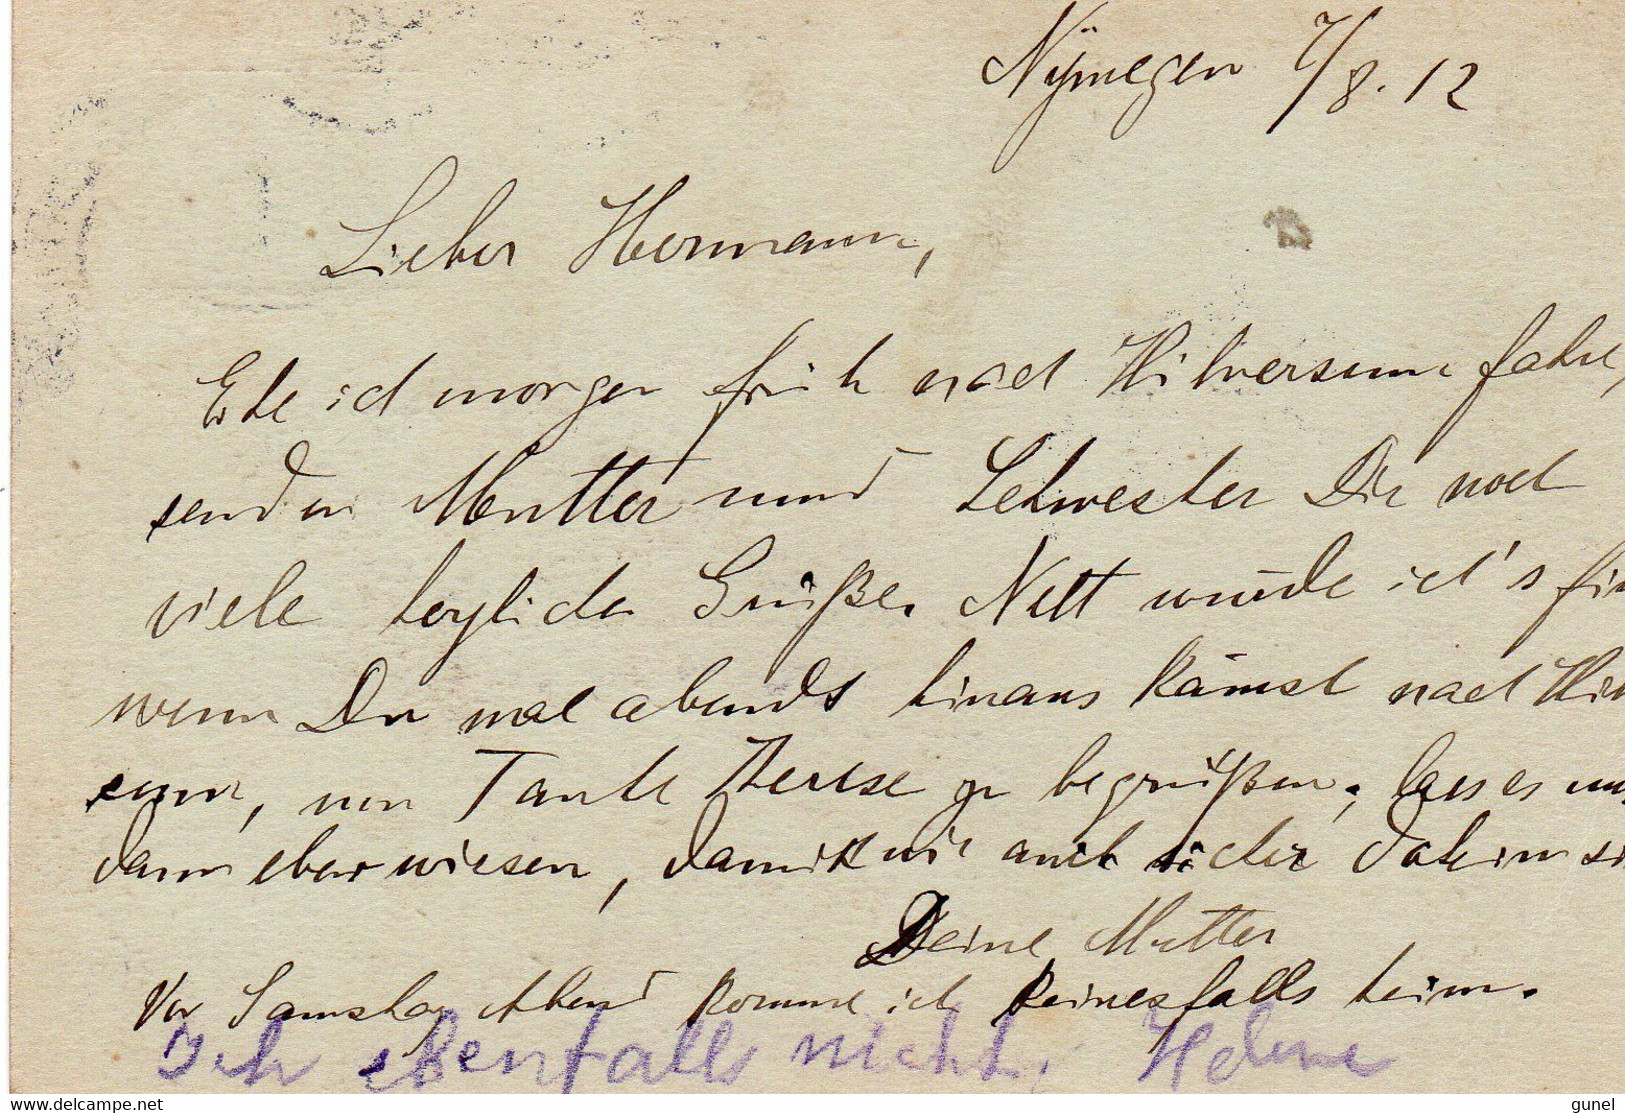 Nymegen 7/8.12
Lieber Hermann,
Ehe ich morgen früh nach Hilversum fahre,
senden Mutter und Schwester Dir noch
viele herzliche Grüße. Nett würde ich's fin
wenn Du mal abends hinaus kämst nach Hilver
sum, um Tante Therese zu begrüßen; lass es uns
dann eben wissen, damit wir auch sicher daheim si
Deine Mutter
Vor Samstag Abend komme ich keinesfalls heim.
Ich ebenfalls nicht. Helene
www.delcampe.net
gunel